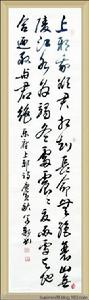 上邪我欲與君相知長命無絕衰山無
陵江水為竭冬雷震震夏雨雪天地
合乃敢與君絕 樂府上邪詩庚寅秋